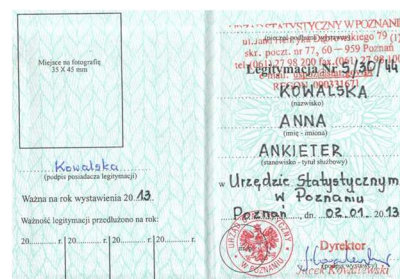 Miejsce na fotografię
35 X 45 mm
Kowalska
(podpis posiadacza legitymacji)
Ważna na rok wystawienia 2013.
Ważność legitymacji przedłużono na rok:
20......... r. 20......... r. 20......... r. 20......... r.
STATYSTYCZNY W POZNANIU
ul. Jana Henryka Dąbrowskiego 79
skr. poczt. nr 77, 60 – 959 Poznań
tel. (061) 27 98 200
Legitymacja Nr 5/30/44
KOWALSKA
(nazwisko)
ANNA
(imię - imiona)
ANKIETER
(stanowisko - tytuł służbowy)
w Urzędzie Statystycznym
w Poznaniu
Poznań, dn. 02.01.2013
URZĄD STATYSTYCZNY
W POZNANIU
Dyrektor
Jacek Kowalewski